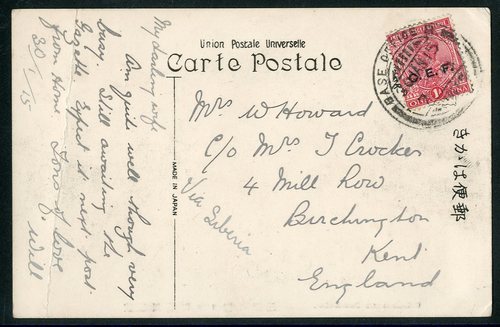 Union Postale Universelle
Carte Postale
My darling wife
Am quite well though very
busy. Still awaiting the
Gazette. Expect it next post
from Home Tons of love
30/1/15 Will
MADE IN JAPAN
Mrs W Howard
C/o Mrs J Crocker
4 Mill Row
Birchington
Kent
England
Via Siberia
BASE OF
C.E.F.
1A
きかは便郵